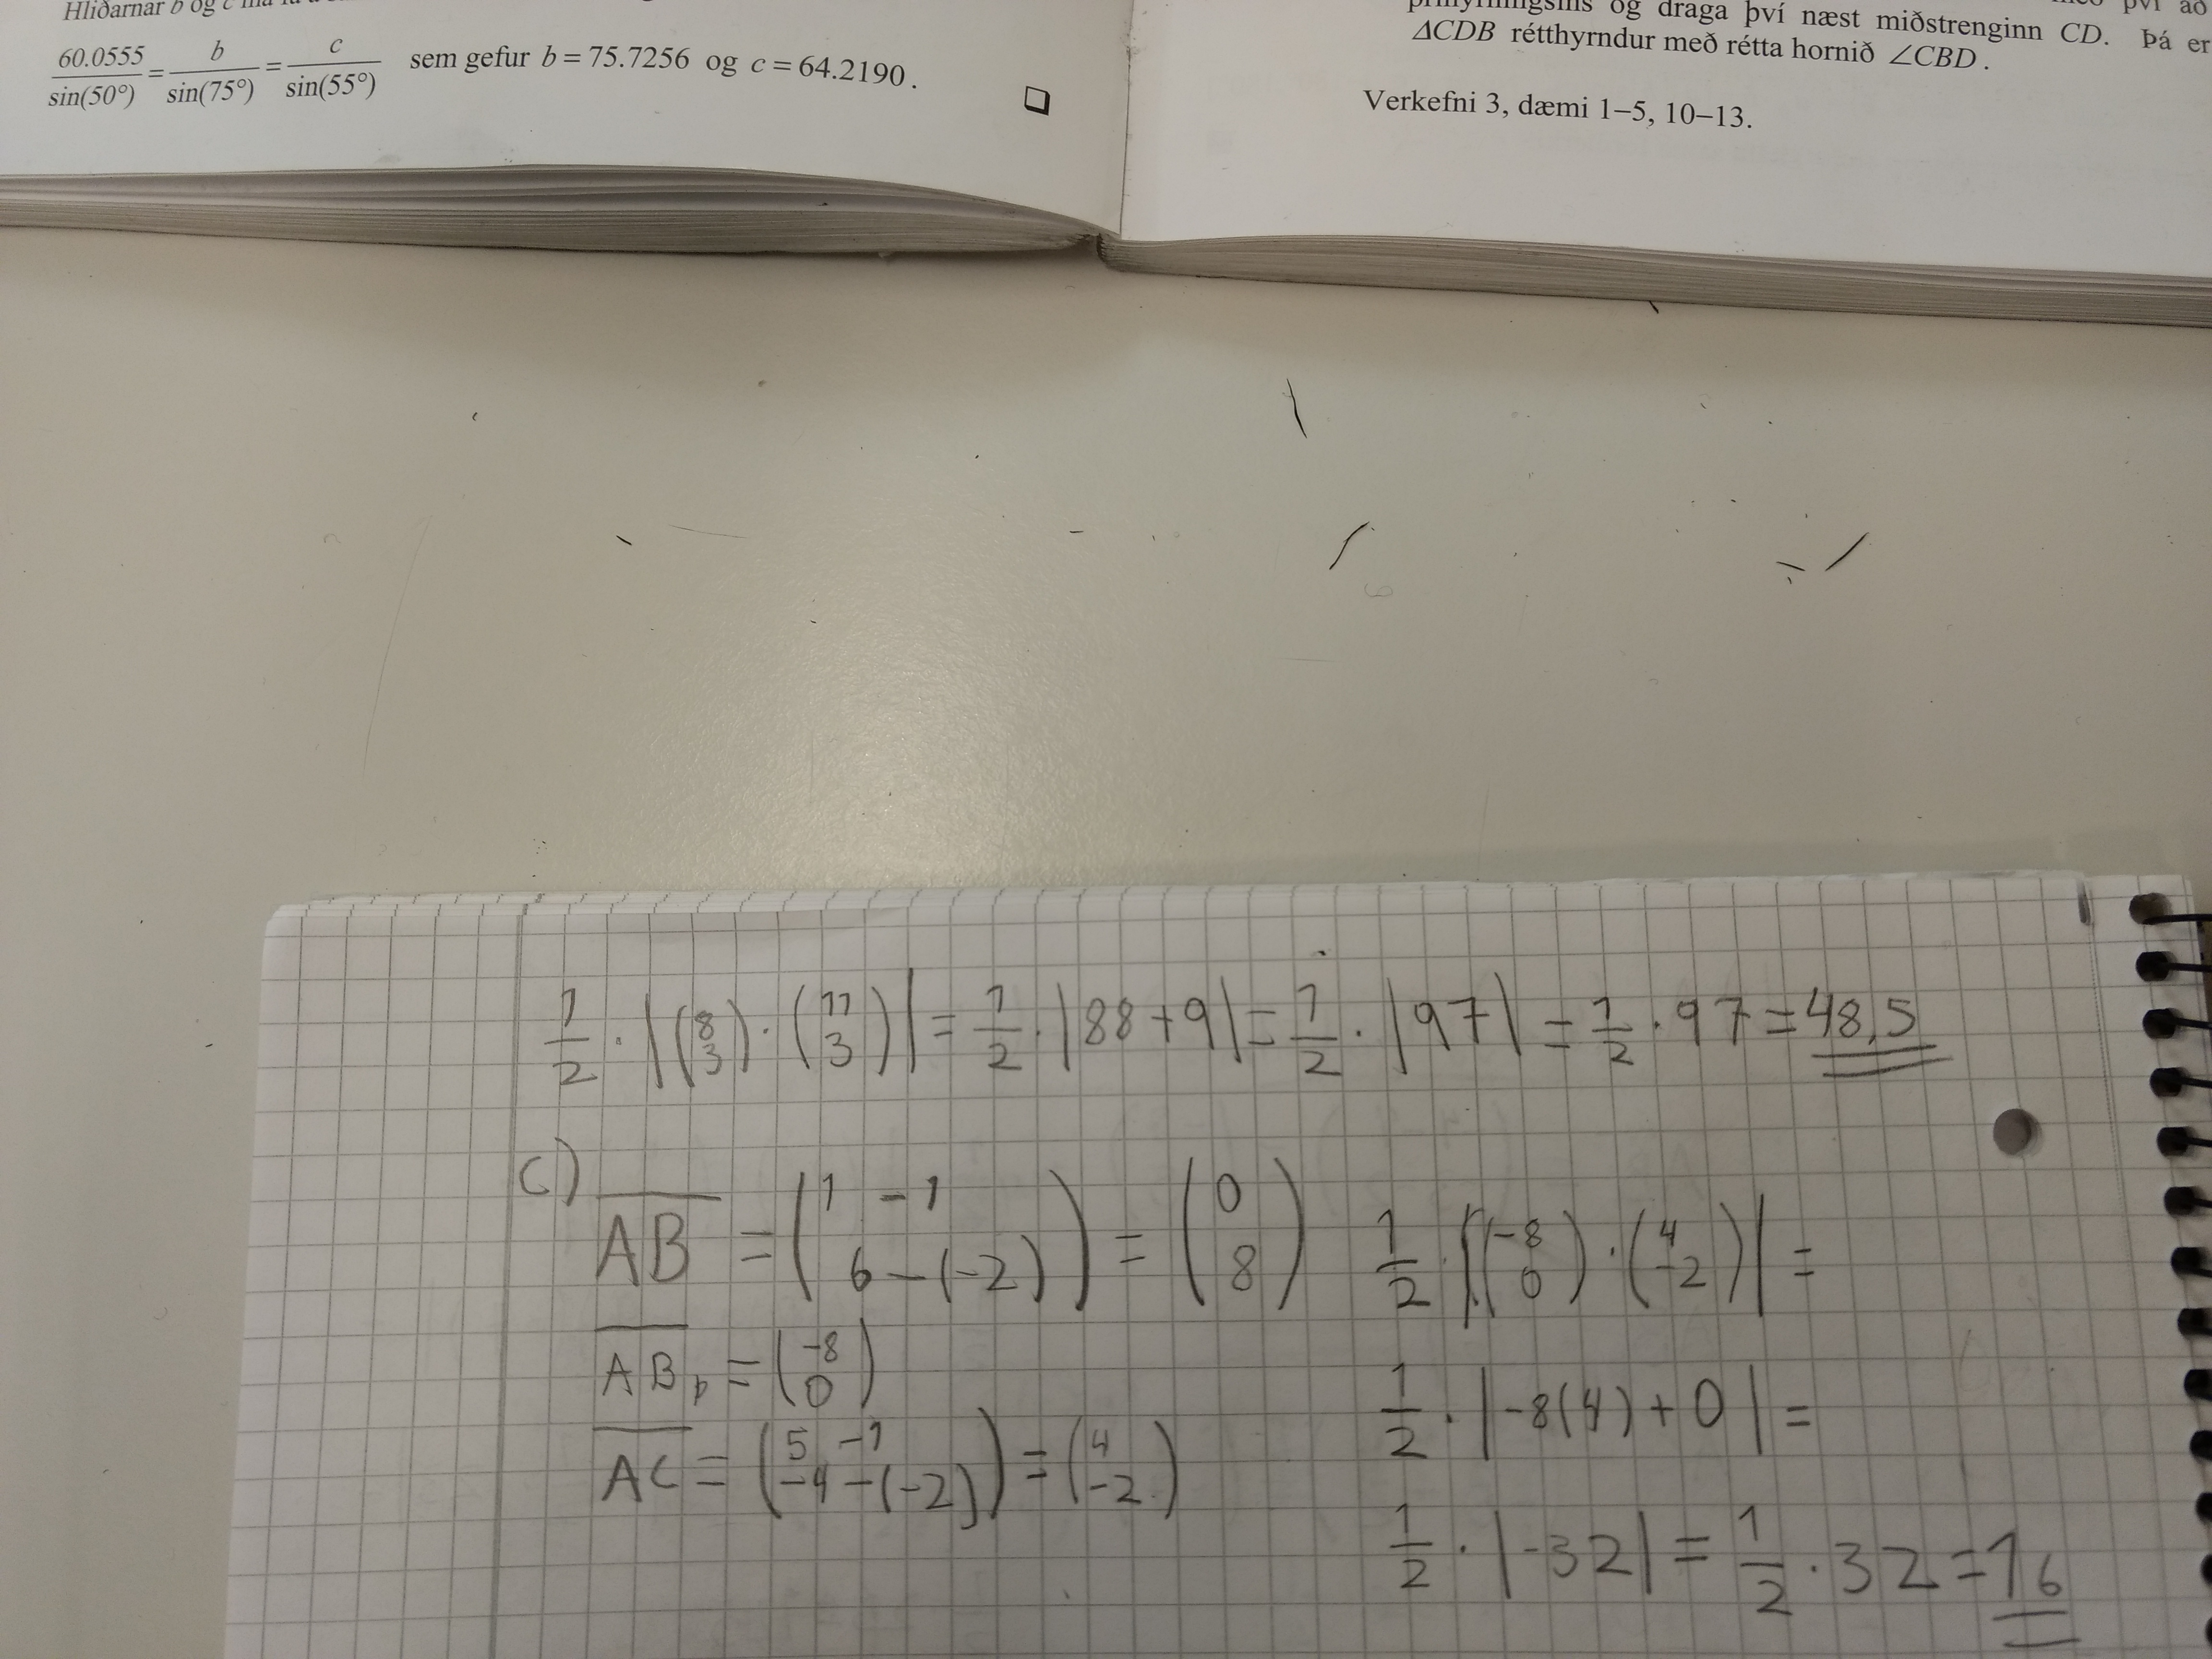 Hliðarnar b og c má
60.0555/sin(50°) = b/sin(75°) = c/sin(55°) sem gefur b = 75.7256 og c = 64.2190.
❑
og draga því næst miðstrenginn CD. Þá er
ΔCDB rétthyrndur með rétta hornið ∠CBD.
Verkefni 3, dæmi 1–5, 10–13.
1/2 · |(8 3) · (11 3)| = 1/2 · |88 + 9| = 1/2 · |97| = 1/2 · 97 = 48,5
c)
AB = (1 - 1 6 - (-2)) = (0 8)
ABþ = (-8 0)
AC = (5 - 1 -4 - (-2)) = (4 -2)
1/2 · |(-8 0) · (4 -2)| =
1/2 · |-8(4) + 0| =
1/2 · |-32| = 1/2 · 32 = 16